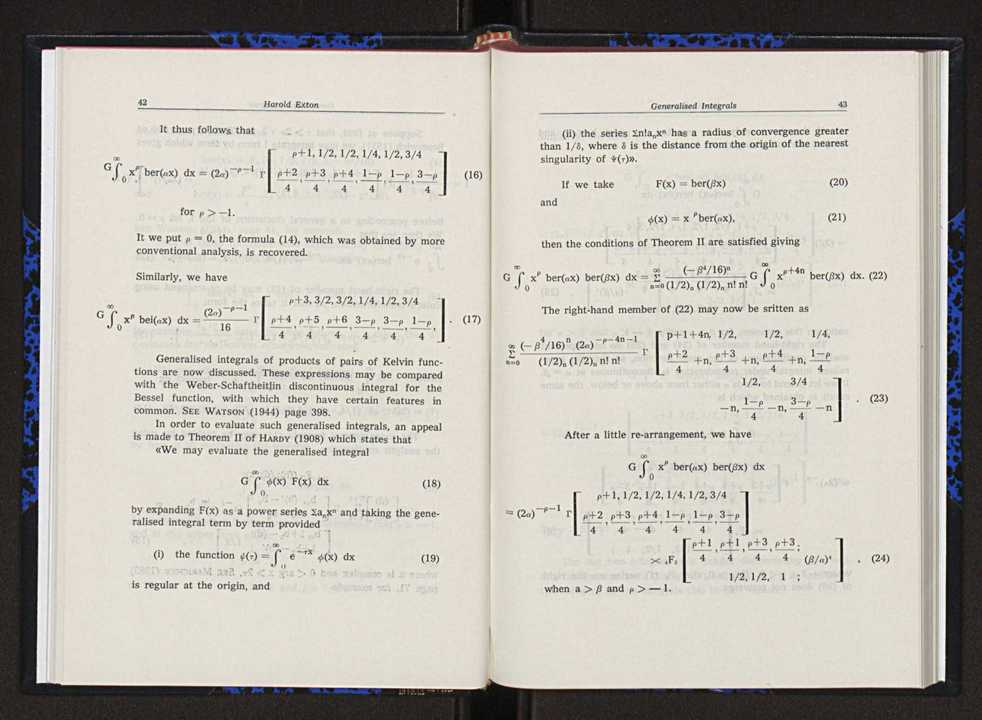 42 Harold Exton
It thus follows that
G ∫₀^∞ x^ρ ber(αx) dx = (2α)^{−ρ−1} Γ [ ρ+1, 1/2, 1/2, 1/4, 1/2, 3/4 ; (ρ+2)/4, (ρ+3)/4, (ρ+4)/4, (1−ρ)/4, (1−ρ)/4, (3−ρ)/4 ] (16)
for ρ > −1.
It we put ρ = 0, the formula (14), which was obtained by more
conventional analysis, is recovered.
Similarly, we have
G ∫₀^∞ x^ρ bei(αx) dx = (2α)^{−ρ−1}/16 Γ [ ρ+3, 3/2, 3/2, 1/4, 1/2, 3/4 ; (ρ+4)/4, (ρ+5)/4, (ρ+6)/4, (3−ρ)/4, (3−ρ)/4, (1−ρ)/4, ] . (17)
Generalised integrals of products of pairs of Kelvin func-
tions are now discussed. These expressions may be compared
with the Weber-Schaftheitlin discontinuous integral for the
Bessel function, with which they have certain features in
common. SEE WATSON (1944) page 398.
In order to evaluate such generalised integrals, an appeal
is made to Theorem II of HARDY (1908) which states that
«We may evaluate the generalised integral
G ∫₀^∞ φ(x) F(x) dx (18)
by expanding F(x) as a power series Σaₙxⁿ and taking the gene-
ralised integral term by term provided
(i) the function ψ(τ) = ∫₀^∞ e^{−τx} φ(x) dx (19)
is regular at the origin, and
Generalised Integrals 43
(ii) the series Σn!aₙxⁿ has a radius of convergence greater
than 1/δ, where δ is the distance from the origin of the nearest
singularity of Ψ(τ)».
If we take F(x) = ber(βx) (20)
and
φ(x) = x ^ρ ber(αx), (21)
then the conditions of Theorem II are satisfied giving
G ∫₀^∞ x^ρ ber(αx) ber(βx) dx = Σ_{n=0}^∞ (−β⁴/16)ⁿ / (1/2)ₙ (1/2)ₙ n! n! G ∫₀^∞ x^{ρ+4n} ber(βx) dx. (22)
The right-hand member of (22) may now be sritten as
Σ_{n=0}^∞ (−β⁴/16)ⁿ (2α)^{−ρ−4n−1} / (1/2)ₙ (1/2)ₙ n! n! Γ [ p+1+4n, 1/2, 1/2, 1/4,
(ρ+2)/4 +n, (ρ+3)/4 +n, (ρ+4)/4 +n, (1−ρ)/4
1/2, 3/4
−n, (1−ρ)/4 −n, (3−ρ)/4 −n ] . (23)
After a little re-arrangement, we have
G ∫₀^∞ x^ρ ber(αx) ber(βx) dx
= (2α)^{−ρ−1} Γ [ ρ+1, 1/2, 1/2, 1/4, 1/2, 3/4 ; (ρ+2)/4, (ρ+3)/4, (ρ+4)/4, (1−ρ)/4, (1−ρ)/4, (3−ρ)/4 ]
× ₄F₃ [ (ρ+1)/4, (ρ+1)/4, (ρ+3)/4, (ρ+3)/4; (β/α)⁴ 1/2, 1/2, 1 ; ] . (24)
when a > β and ρ > — 1.